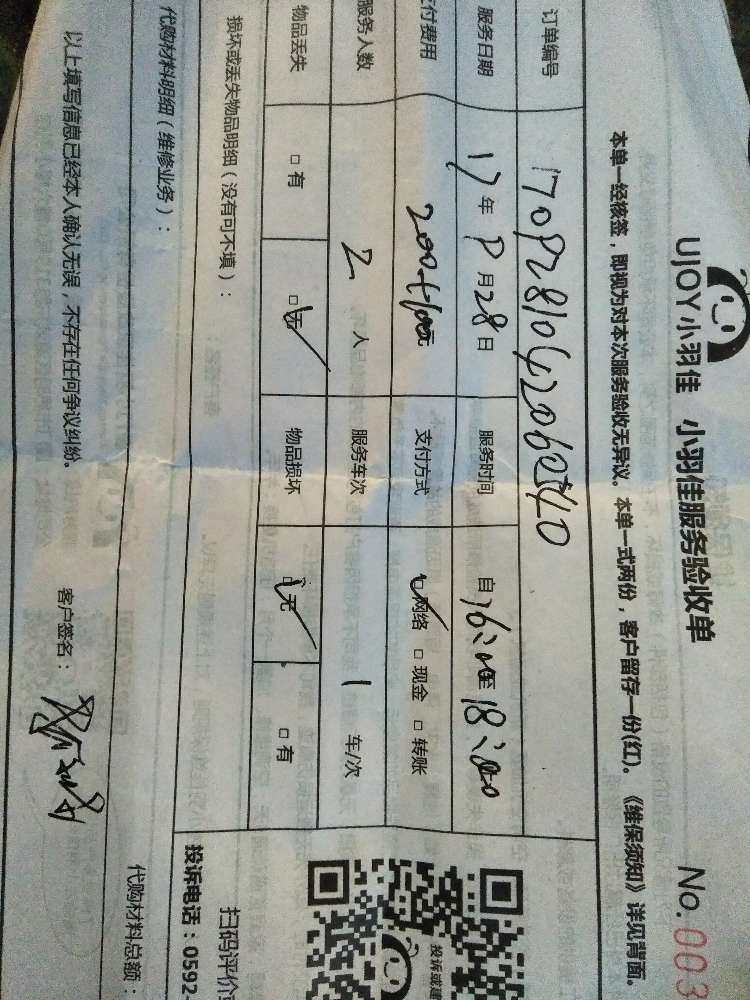 UJOY小羽佳 小羽佳服务验收单 No.003
本单一经核签，即视为对本次服务验收无异议。本单一式两份，客户留存一份(红)。《维保须知》详见背面。
订单编号
服务日期 17年9月28日 服务时间 自16:00至18:00
支付费用 支付方式 ☑网络 □现金 □转账
服务人数 2人 服务车次 1 车/次
物品丢失 □有 ☑无 物品损坏 ☑无 □有
损坏或丢失物品明细（没有可不填）：
扫码评价
投诉或建
投诉电话：0592-
代购材料明细（维修业务）：
代购材料总额：
以上填写信息已经本人确认无误，不存在任何争议纠纷。
客户签名：